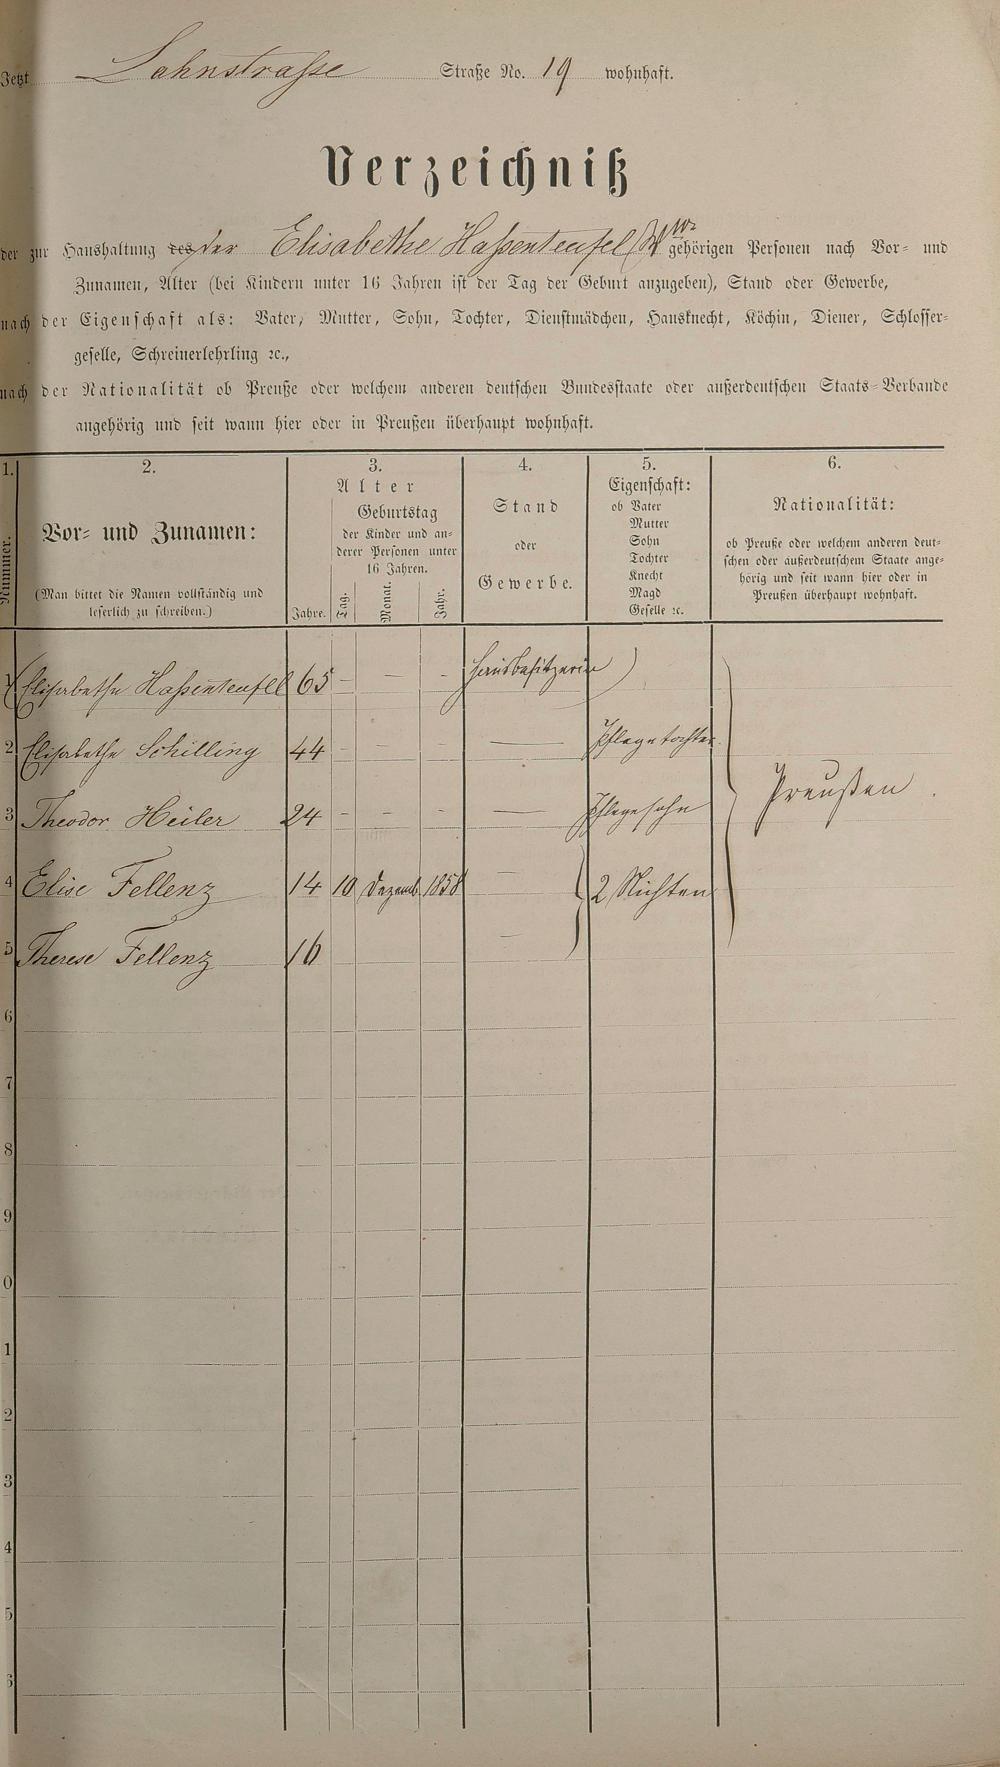 Jetzt Lahnstraße Straße No. 19 wohnhaft.
Verzeichniß
der zur Haushaltung des der Elisabethe Haßenteufel Ww gehörigen Personen nach Vor- und
Zunamen, Alter (bei Kindern unter 16 Jahren ist der Tag der Geburt anzugeben), Stand oder Gewerbe,
nach der Eigenschaft als: Vater, Mutter, Sohn, Tochter, Dienstmädchen, Hausknecht, Köchin, Diener, Schlosser-
geselle, Schreinerlehrling ꝛc.,
nach der Nationalität ob Preuße oder welchem anderen deutschen Bundesstaate oder außerdeutschen Staats-Verbande
angehörig und seit wann hier oder in Preußen überhaupt wohnhaft.
1. 2. 3. 4. 5. 6.
Nummer.
Vor- und Zunamen:
(Man bittet die Namen vollständig und
leserlich zu schreiben.)
Alter
Geburtstag
der Kinder und an-
derer Personen unter
16 Jahren.
Jahre. Tag. Monat. Jahr.
Stand
oder
Gewerbe.
Eigenschaft:
ob Vater
Mutter
Sohn
Tochter
Knecht
Magd
Geselle ꝛc.
Nationalität:
ob Preuße oder welchem anderen deut-
schen oder außerdeutschem Staate ange-
hörig und seit wann hier oder in
Preußen überhaupt wohnhaft.
1 Elisabethe Haßenteufel 65 – – – Hausbesitzerin
2 Elisabethe Schilling 44 – – – — Pflegetochter
3 Theodor Heiler 24 – – – — Pflegesohn
Preußen.
4 Elise Fellenz 14 10 Dezemb. 1858 — 2 Nichten
5 Therese Fellenz 16 —
6
7
8
9
0
1
2
3
4
5
6